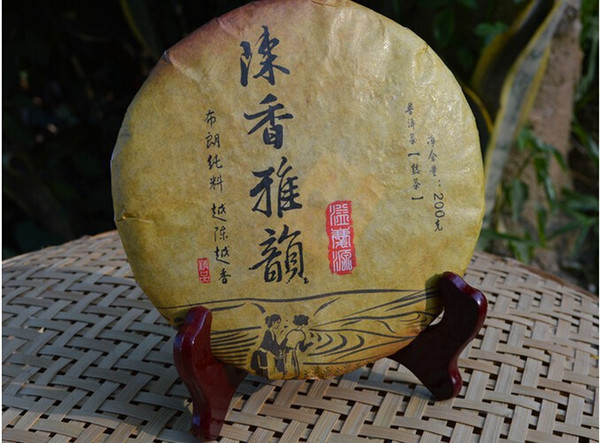 陈香雅韵
布朗纯料 越陈越香
普洱茶【熟茶】
净含量：200克